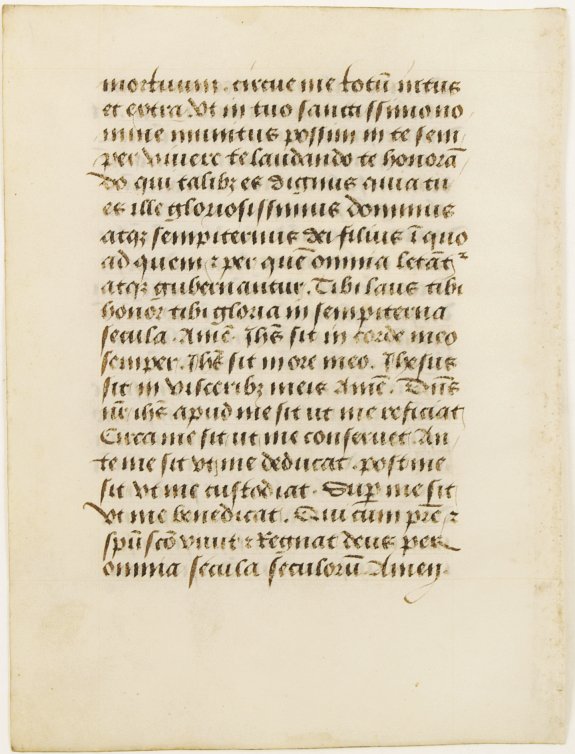 mortuum. circue me totū intus
et extra vt in tuo sanctissimo no
mine munitus possim in te sem
per viuere te laudando te honorā
do qui talibꝫ es dignus quia tu
es ille gloriosissimus dominus
atqꝫ sempiternus dei filius ī quo
ad quem ⁊ per quē omnia letāt᷑
atqꝫ gubernantur. Tibi laus tibi
honor tibi gloria in sempiterna
secula. Amē. Jhs̄ sit in corde meo
semper. Jhs̄ sit in ore meo. Jhesus
sit in visceribꝫ meis Amē. Dn̄s
nr̄ ihs̄ apud me sit ut me reficiat
Circa me sit ut me conseruet An
te me sit vt me deducat. post me
sit vt me custodiat. Sup̄ me sit
vt me benedicat. Qui cum pr̄e ⁊
spū scō viuit ⁊ Regnat deus per
omnia secula seculorū Amen.